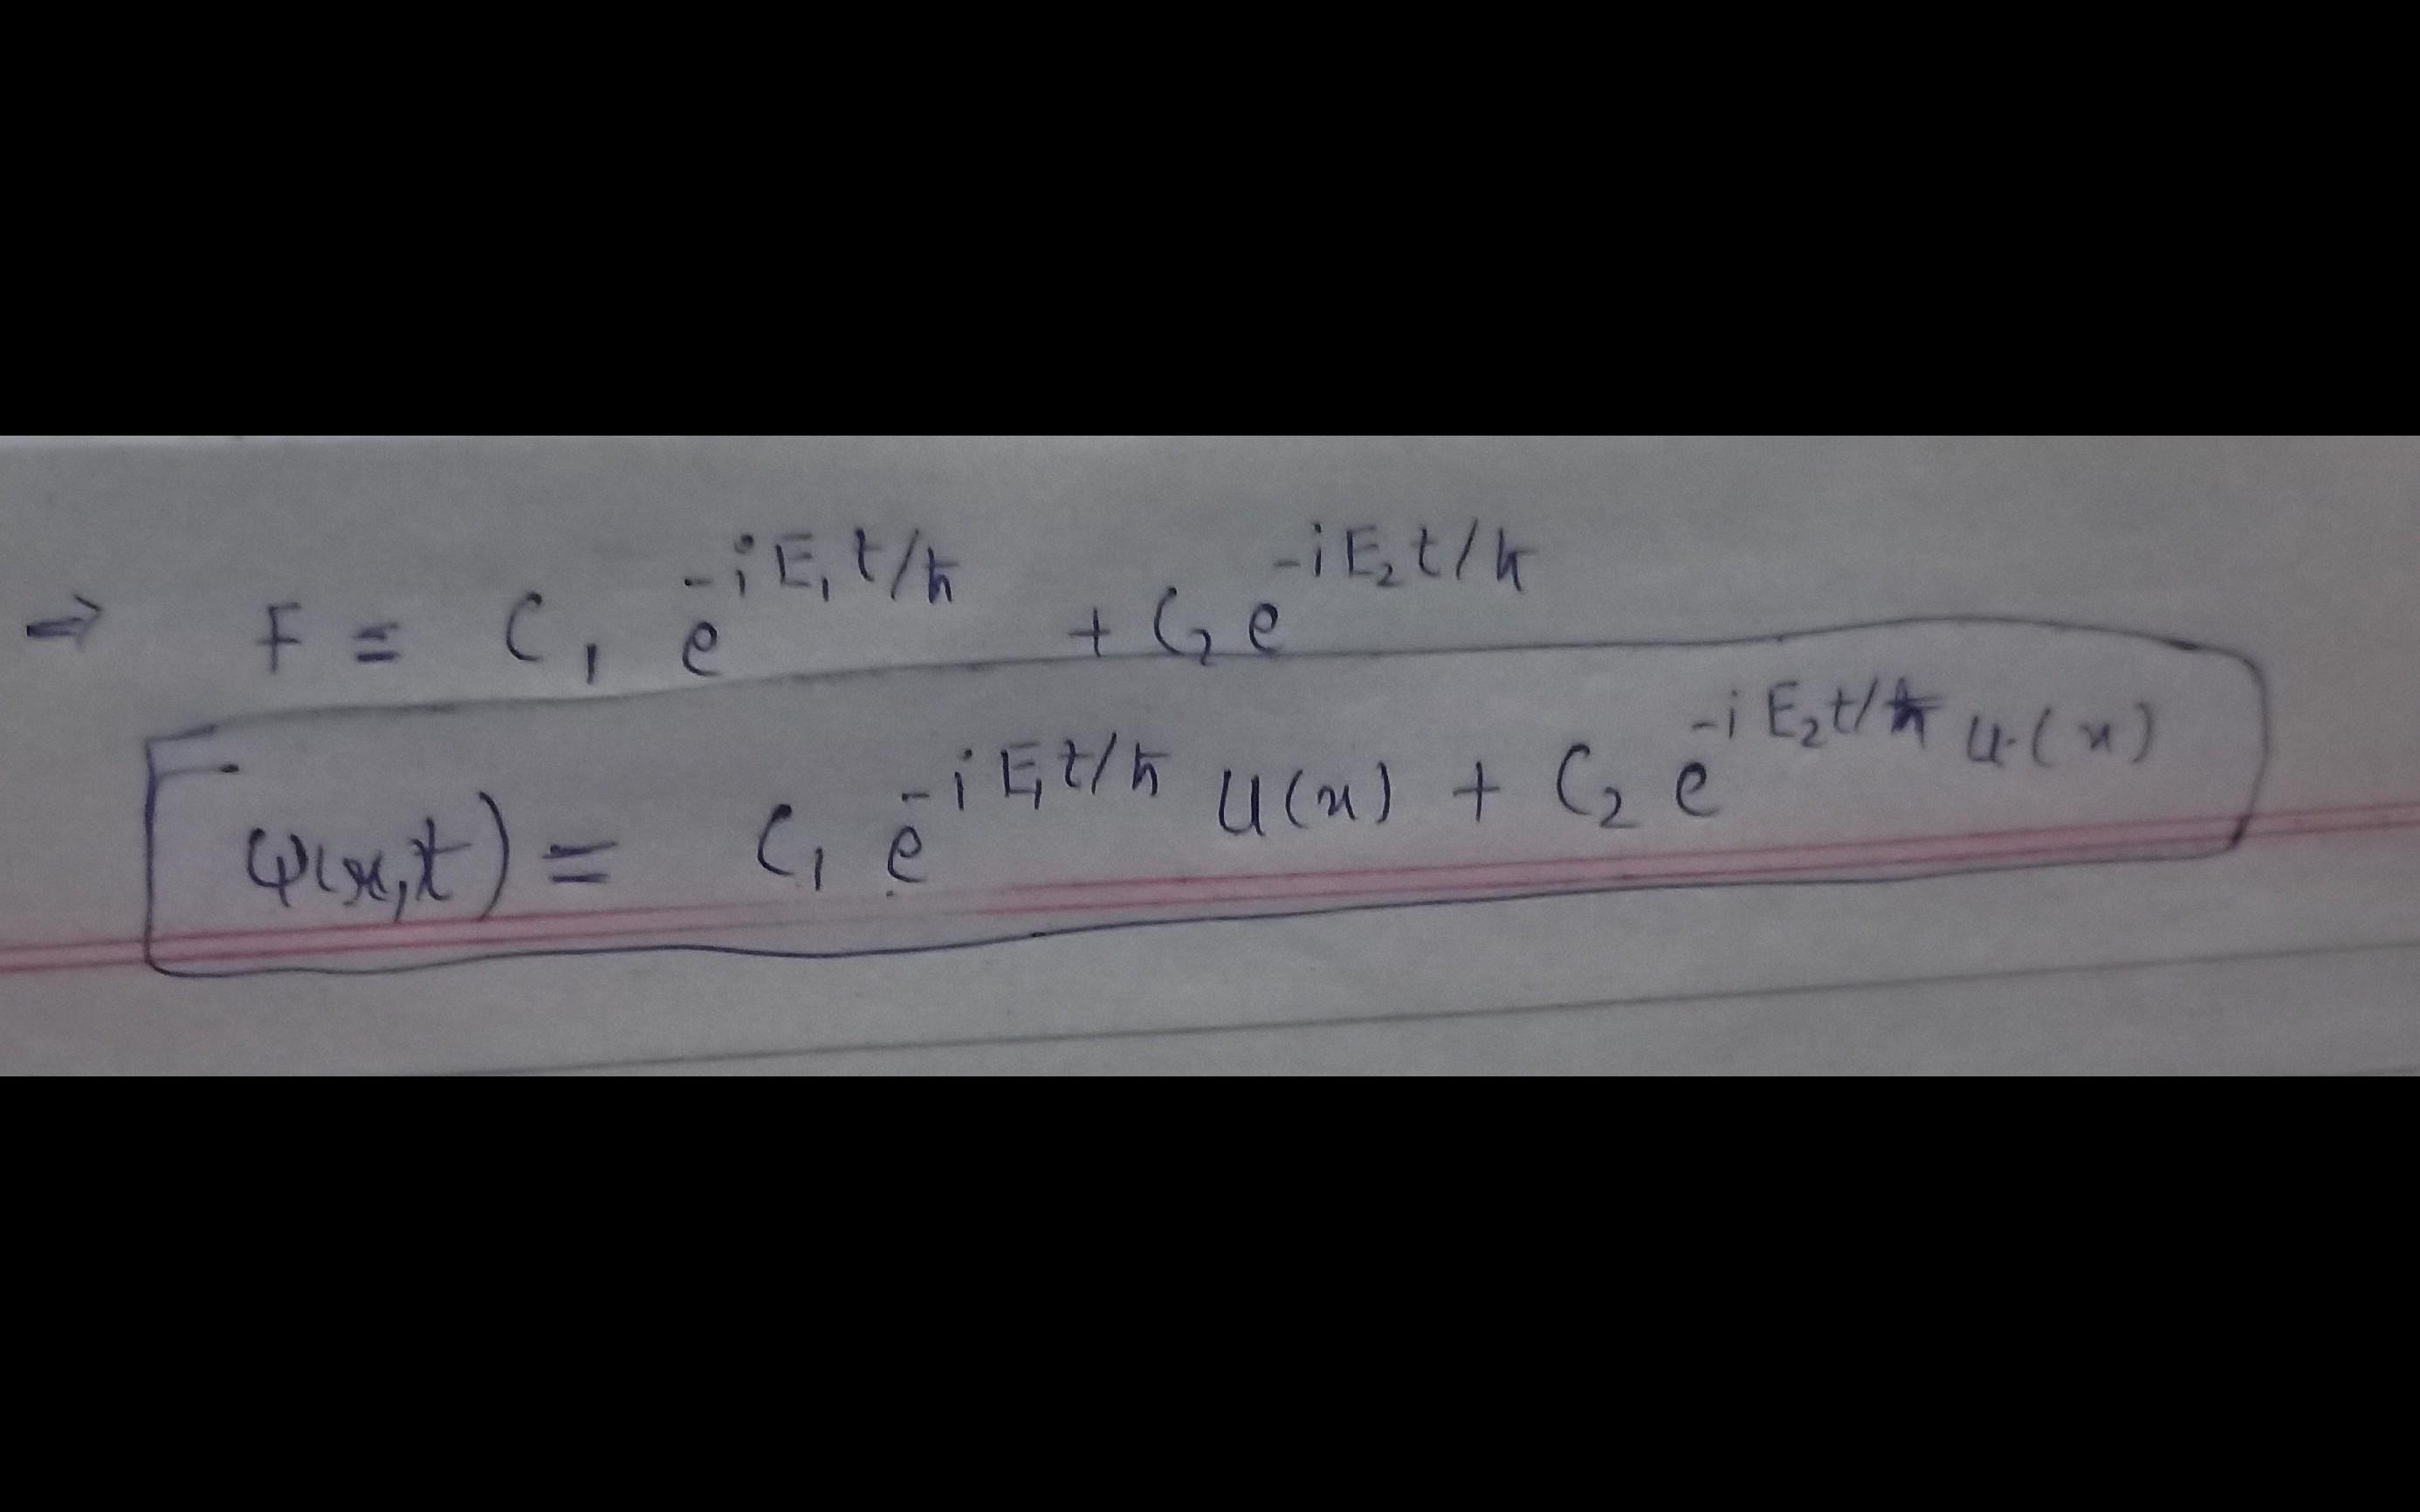 ⇒ F = C₁ e^{-iE₁t/ħ} + C₂ e^{-iE₂t/ħ}
ψ(x,t) = C₁ e^{-iE₁t/ħ} u(x) + C₂ e^{-iE₂t/ħ} u(x)